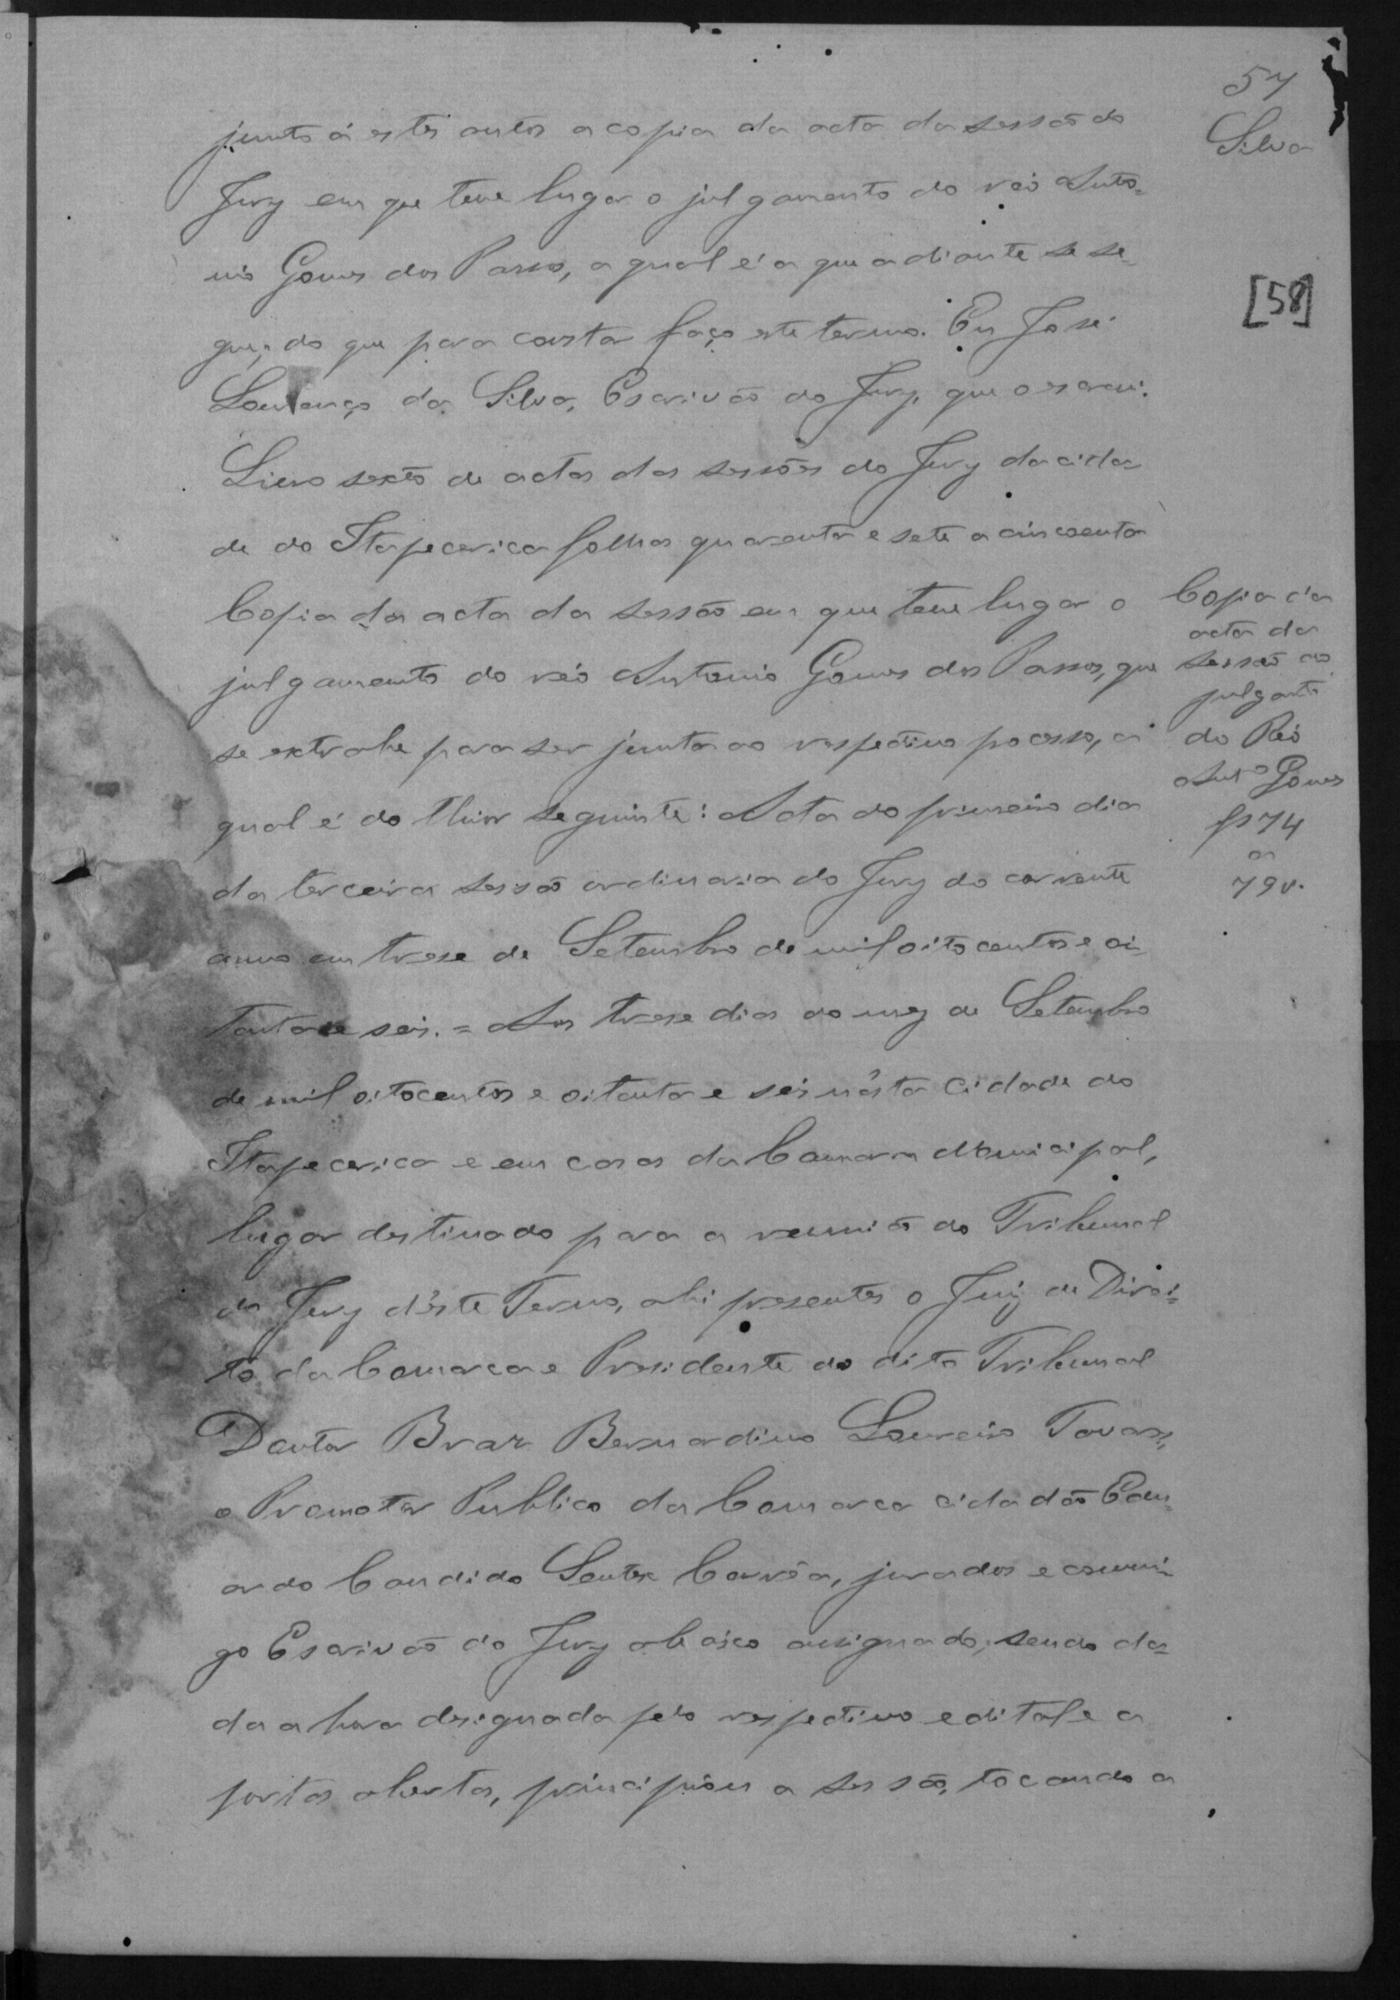 57
Silva
[58]
junto á estes autos a copia da acta da sessão do
Jury em que teve lugar o julgamento do réo Anto-
nio Gomes dos Passos, a qual é a que adiante se se-
gue; do que para constar faço este termo. Eu José
Lourenço da Silva, Escrivão do Jury, que o escrevi.
Livro sexto de actas das sessões do Jury da cida
de do Itapecerica folhas quarenta e sete a cincoenta
Copia da acta da sessão em que teve lugar o
julgamento do réo Antonio Gomes dos Passos, que
se extrahe para ser junta ao respectivo processo, a
qual é do theor seguinte: Acta do primeiro dia
da terceira sessão ordinaria do Jury do corrente
anno em trese de Setembro de mil oito centos e oi-
tenta e seis. = Aos trese dias do mez de Setembro
de mil oitocentos e oitenta e seis n'ésta Cidade do
Itapecerica e em casas da Camara Municipal,
lugar destinado para a reunião do Tribunal
do Jury d'éste Termo, ahi presentes o Juiz de Direi-
to da Comarca e Presidente do dito Tribunal
Doutor Braz Bernardino Loureiro Tavares,
o Promotor Publico da Comarca cidadão Edu-
ardo Candido Santos Corrêa, jurados e commi-
go Escrivão do Jury abaixo assignado; sendo da-
da a hora designada pelo respectivo edital e a
portas abertas, principiou a sessão, tocando a
Copia da
acta da
sessão do
julgamto
do Réo
Anto Gomes
fs 74
a
79v.